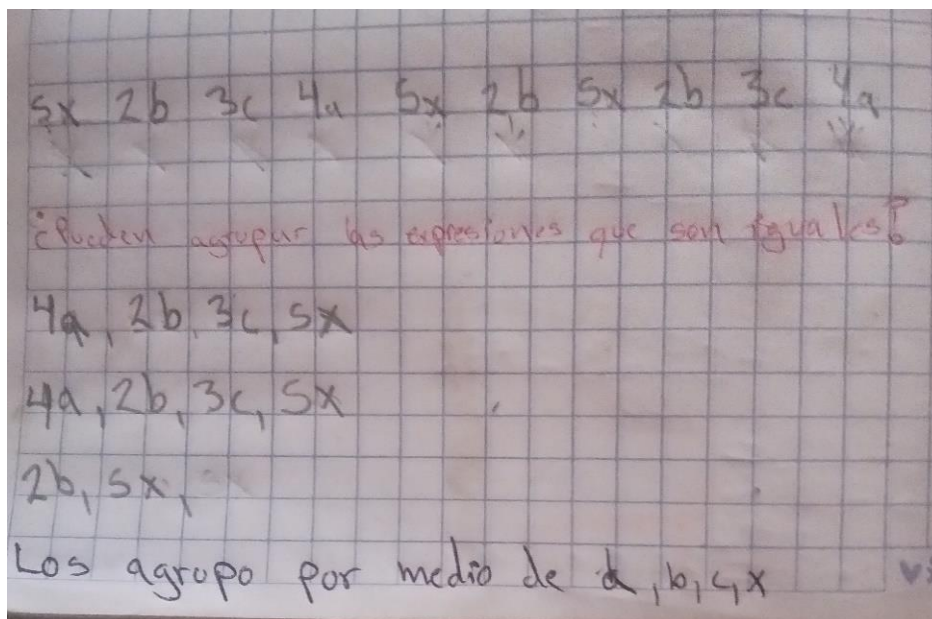 5x 2b 3c 4a 5x 2b 5x 2b 3c 4a
¿Pueden agrupar las expresiones que son iguales?
4a, 2b, 3c, 5x
4a, 2b, 3c, 5x
2b, 5x,
Los agrupo por medio de a, b, c, x